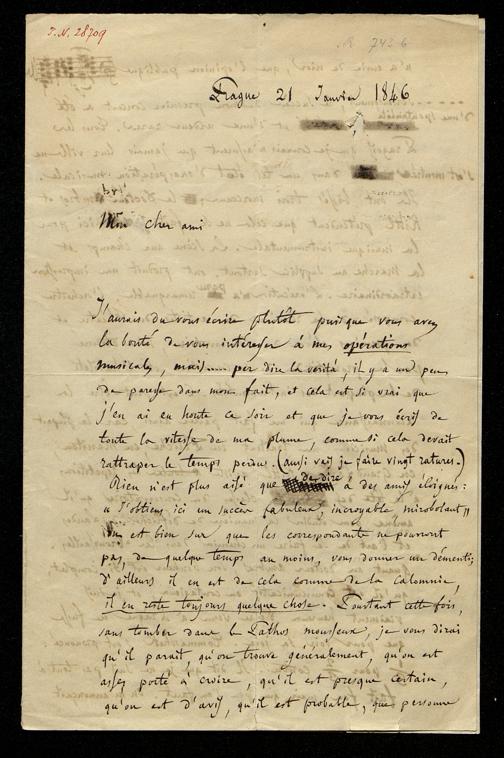 I.N. 28709
R 743 b
Prague 21 Janvier 1846
Mon cher ami
J'aurais du vous écrire plutôt puisque vous avez
la bonté de vous intéresser à mes opérations
musicales, mais..... per dire la verità, il y a un peu
de paresse dans mon fait, et cela est si vrai que
j'en ai eu honte ce soir et que je vous écris de
toute la vitesse de ma plume, comme si cela devait
rattraper le temps perdu. (aussi vais je faire vingt ratures.)
Rien n'est plus aisé que de dire à des amis éloignés:
« J'obtiens ici un succès fabuleux, incroyable, mirobolant »
On est bien sur que les correspondants ne pourront
pas, de quelque temps au moins, vous donner un démenti;
d'ailleurs il en est de cela comme de la calomnie,
il en reste toujours quelque chose. Pourtant cette fois,
sans tomber dans le Pathos mousseux, je vous dirai
qu'il parait, qu'on trouve généralement, qu'on est
assez porté à croire, qu'il est presque certain,
qu'on est d'avis, qu'il est probable, que personne